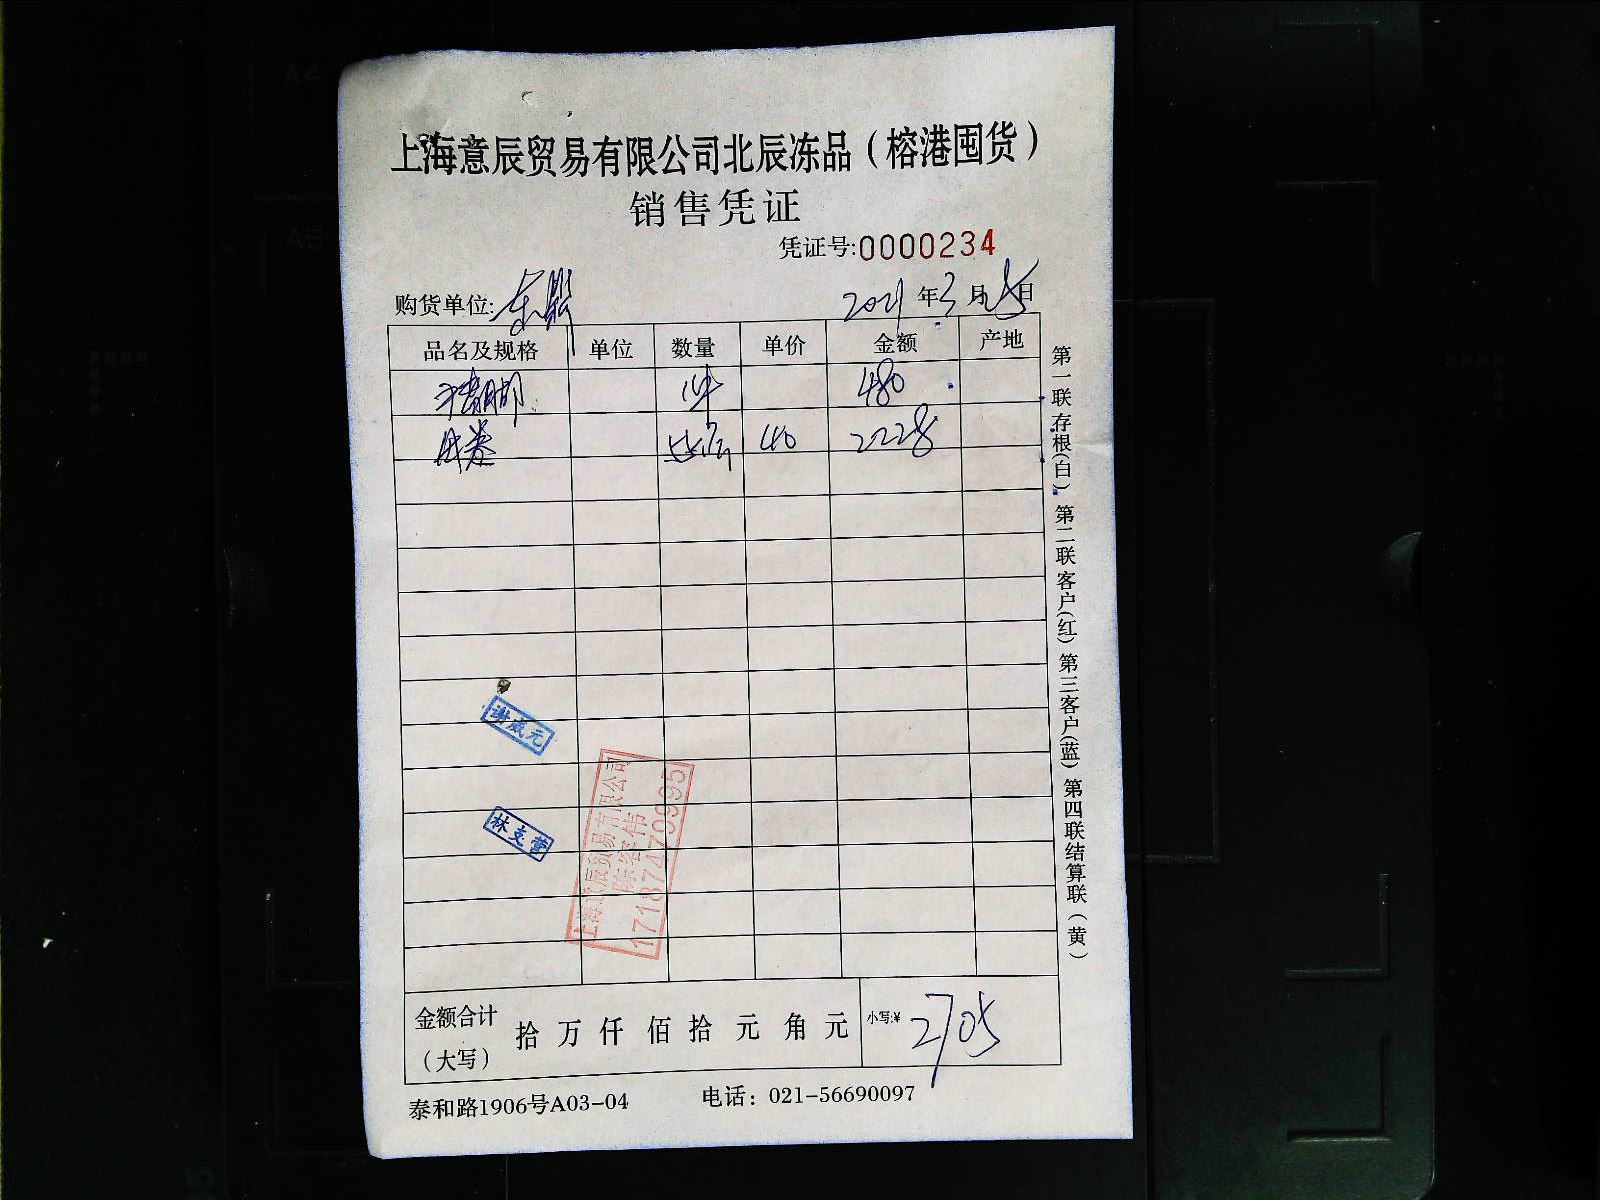 上海意辰贸易有限公司北辰冻品（榕港囤货）
销售凭证
凭证号:0000234
购货单位: 2021年3月25日
品名及规格 单位 数量 单价 金额 产地
1件 480
40 2228
谢成元
林支营
上海意辰贸易有限公司
陈容伟
17187470995
金额合计（大写） 拾 万 仟 佰 拾 元 角 元 小写:¥ 2705
泰和路1906号A03-04 电话：021-56690097
第一联存根(白) 第二联客户(红) 第三客户(蓝) 第四联结算联（黄）